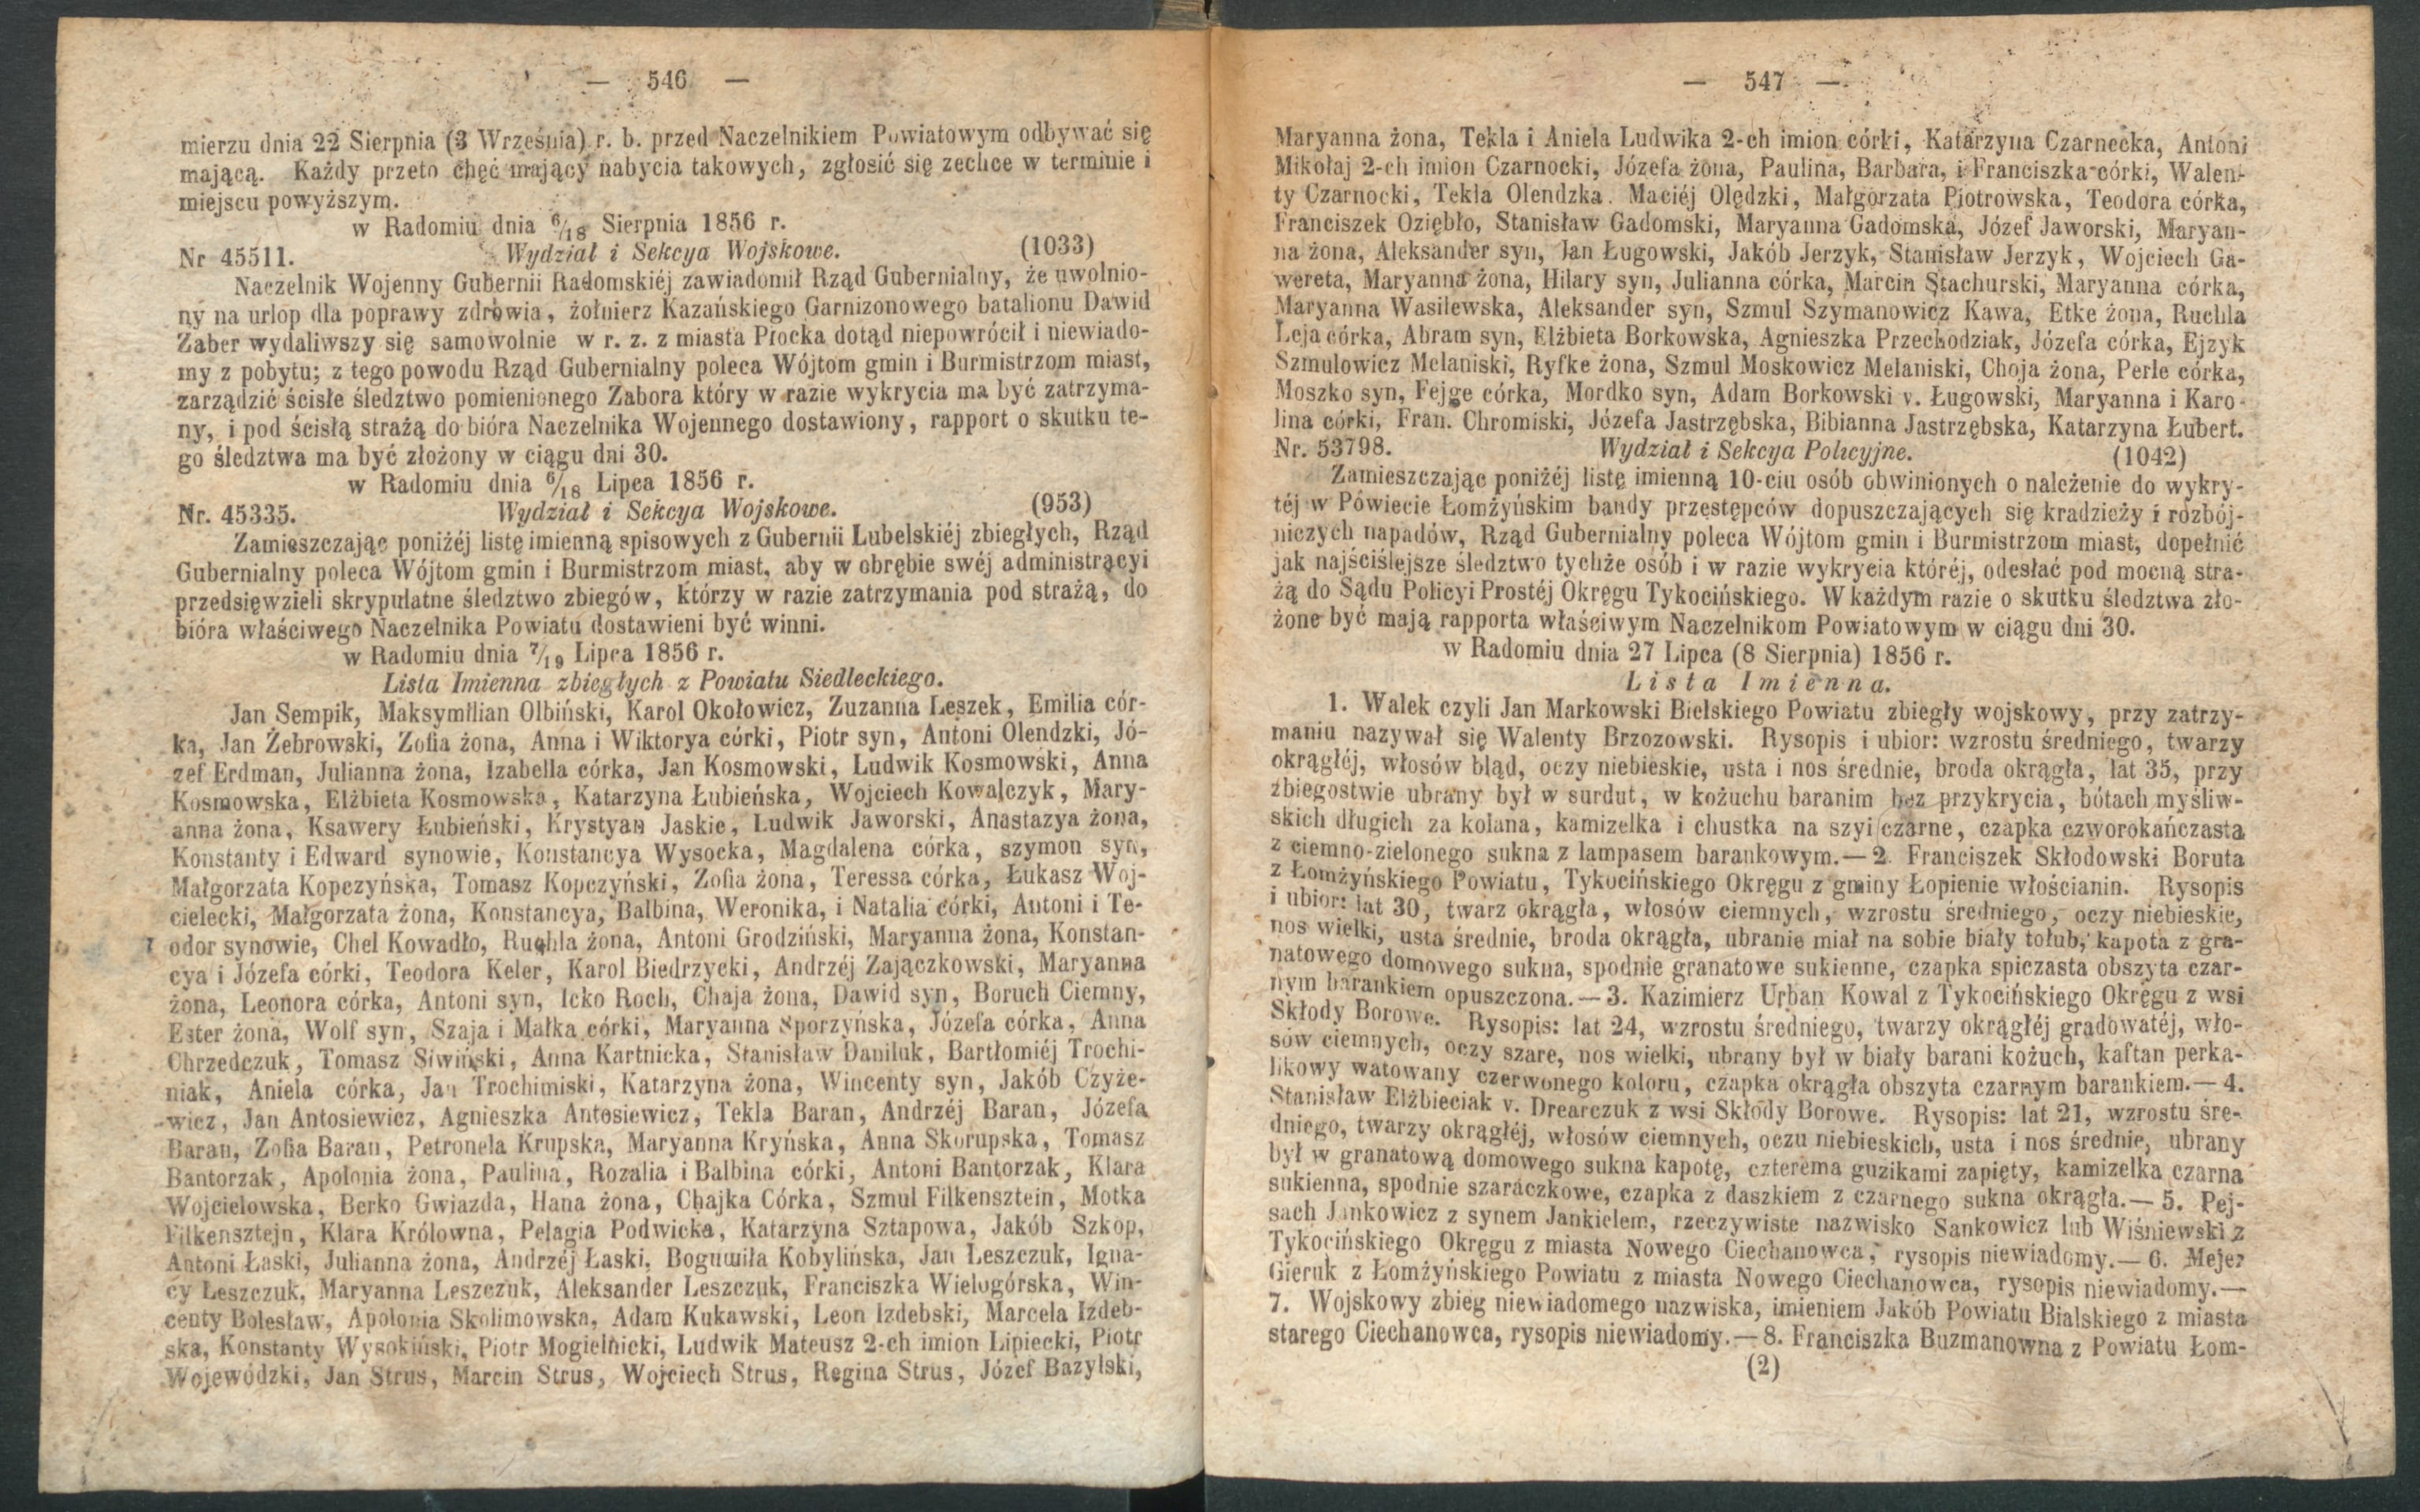 — 546 —
mierzu dnia 22 Sierpnia (3 Września) r. b. przed Naczelnikiem Powiatowym odbywać się
mającą. Każdy przeto chęć mający nabycia takowych, zgłosić się zechce w terminie i
miejscu powyższym.
w Radomiu dnia 6/18 Sierpnia 1856 r.
Nr 45511. Wydział i Sekcya Wojskowe. (1033)
Naczelnik Wojenny Gubernii Radomskiéj zawiadomił Rząd Gubernialny, że uwolnio-
ny na urlop dla poprawy zdrowia, żołnierz Kazańskiego Garnizonowego batalionu Dawid
Zaber wydaliwszy się samowolnie w r. z. z miasta Płocka dotąd niepowrócił i niewiado-
my z pobytu; z tego powodu Rząd Gubernialny poleca Wójtom gmin i Burmistrzom miast,
zarządzić ścisłe śledztwo pomienionego Zabora który w razie wykrycia ma być zatrzyma-
ny, i pod ścisłą strażą do bióra Naczelnika Wojennego dostawiony, rapport o skutku te-
go śledztwa ma być złożony w ciągu dni 30.
w Radomiu dnia 6/18 Lipca 1856 r.
Nr. 45335. Wydział i Sekcya Wojskowe. (953)
Zamieszczając poniżéj listę imienną spisowych z Gubernii Lubelskiéj zbiegłych, Rząd
Gubernialny poleca Wójtom gmin i Burmistrzom miast, aby w obrębie swéj administrącyi
przedsięwzieli skrypulatne śledztwo zbiegów, którzy w razie zatrzymania pod strażą, do
bióra właściwego Naczelnika Powiatu dostawieni być winni.
w Radomiu dnia 7/19 Lipca 1856 r.
Lista Imienna zbiegłych z Powiatu Siedleckiego.
Jan Sempik, Maksymilian Olbiński, Karol Okołowicz, Zuzanna Leszek, Emilia cór-
ka, Jan Żebrowski, Zofia żona, Anna i Wiktorya córki, Piotr syn, Antoni Olendzki, Jó-
zef Erdman, Julianna żona, Izabella córka, Jan Kosmowski, Ludwik Kosmowski, Anna
Kosmowska, Elżbieta Kosmowska, Katarzyna Łubieńska, Wojciech Kowalczyk, Mary-
anna żona, Ksawery Łubieński, Krystyan Jaskie, Ludwik Jaworski, Anastazya żona,
Konstanty i Edward synowie, Konstancya Wysocka, Magdalena córka, szymon syn,
Małgorzata Kopczyńska, Tomasz Kopczyński, Zofia żona, Teressa córka, Łukasz Woj-
cielecki, Małgorzata żona, Konstancya, Balbina, Weronika, i Natalia córki, Antoni i Te-
odor synowie, Chel Kowadło, Ruchla żona, Antoni Grodziński, Maryanna żona, Konstan-
cya i Józefa córki, Teodora Keler, Karol Biedrzycki, Andrzéj Zajączkowski, Maryanna
żona, Leonora córka, Antoni syn, Icko Roch, Chaja żona, Dawid syn, Boruch Ciemny,
Ester żona, Wolf syn, Szaja i Małka córki, Maryanna Sporzyńska, Józefa córka, Anna
Chrzedczuk, Tomasz Siwiński, Anna Kartnicka, Stanisław Daniluk, Bartłomiéj Trochi-
niak, Aniela córka, Jan Trochimiski, Katarzyna żona, Wincenty syn, Jakób Czyże-
wicz, Jan Antosiewicz, Agnieszka Antosiewicz, Tekla Baran, Andrzéj Baran, Józefa
Baran, Zofia Baran, Petronela Krupska, Maryanna Kryńska, Anna Skorupska, Tomasz
Bantorzak, Apolonia żona, Paulina, Rozalia i Balbina córki, Antoni Bantorzak, Klara
Wojcielowska, Berko Gwiazda, Hana żona, Chajka Córka, Szmul Filkensztein, Motka
Filkensztejn, Klara Królowna, Pelagia Podwicka, Katarzyna Sztapowa, Jakób Szkop,
Antoni Łaski, Julianna żona, Andrzéj Łaski, Bogumiła Kobylińska, Jan Leszczuk, Igna-
cy Leszczuk, Maryanna Leszczuk, Aleksander Leszczuk, Franciszka Wielogórska, Win-
centy Bolesław, Apolonia Skolimowska, Adam Kukawski, Leon Izdebski, Marcela Izdeb-
ska, Konstanty Wysokiński, Piotr Mogielnicki, Ludwik Mateusz 2-ch imion Lipiecki, Piotr
Wojewódzki, Jan Strus, Marcin Strus, Wojciech Strus, Regina Strus, Józef Bazylski,
— 547 —
Maryanna żona, Tekla i Aniela Ludwika 2-ch imion córki, Katarzyna Czarnecka, Antoni
Mikołaj 2-ch imion Czarnocki, Józefa żona, Paulina, Barbara, i Franciszka córki, Walen-
ty Czarnocki, Tekla Olendzka. Maciéj Olędzki, Małgorzata Piotrowska, Teodora córka,
Franciszek Oziębło, Stanisław Gadomski, Maryanna Gadomska, Józef Jaworski, Maryan-
na żona, Aleksander syn, Jan Ługowski, Jakób Jerzyk, Stanisław Jerzyk, Wojciech Ga-
wereta, Maryanna żona, Hilary syn, Julianna córka, Marcin Stachurski, Maryanna córka,
Maryanna Wasilewska, Aleksander syn, Szmul Szymanowicz Kawa, Etke żona, Ruchla
Leja córka, Abram syn, Elżbieta Borkowska, Agnieszka Przechodziak, Józefa córka, Ejzyk
Szmulowicz Melaniski, Ryfke żona, Szmul Moskowicz Melaniski, Choja żona, Perle córka,
Moszko syn, Fejge córka, Mordko syn, Adam Borkowski v. Ługowski, Maryanna i Karo-
lina córki, Fran. Chromiski, Józefa Jastrzębska, Bibianna Jastrzębska, Katarzyna Łubert.
Nr. 53798. Wydział i Sekcya Policyjne. (1042)
Zamieszczając poniżéj listę imienną 10-ciu osób obwinionych o należenie do wykry-
téj w Powiecie Łomżyńskim bandy przestępców dopuszczających się kradzieży i rozbój-
niczych napadów, Rząd Gubernialny poleca Wójtom gmin i Burmistrzom miast, dopełnić
jak najściślejsze śledztwo tychże osób i w razie wykrycia któréj, odesłać pod mocną stra-
żą do Sądu Policyi Prostéj Okręgu Tykocińskiego. W każdym razie o skutku śledztwa zło-
żone być mają rapporta właściwym Naczelnikom Powiatowym w ciągu dni 30.
w Radomiu dnia 27 Lipca (8 Sierpnia) 1856 r.
Lista Imienna.
1. Walek czyli Jan Markowski Bielskiego Powiatu zbiegły wojskowy, przy zatrzy-
maniu nazywał się Walenty Brzozowski. Rysopis i ubior: wzrostu średniego, twarzy
okrągłéj, włosów bląd, oczy niebieskie, usta i nos średnie, broda okrągła, lat 35, przy
zbiegostwie ubrany był w surdut, w kożuchu baranim bez przykrycia, bótach myśliw-
skich długich za kolana, kamizelka i chustka na szyi czarne, czapka czworokańczasta
z ciemno-zielonego sukna z lampasem barankowym.— 2. Franciszek Skłodowski Boruta
z Łomżyńskiego Powiatu, Tykocińskiego Okręgu z gminy Łopienie włościanin. Rysopis
i ubior: lat 30, twarz okrągła, włosów ciemnych, wzrostu średniego, oczy niebieskie,
nos wielki, usta średnie, broda okrągła, ubranie miał na sobie biały tołub, kapota z gra-
natowego domowego sukna, spodnie granatowe sukienne, czapka spiczasta obszyta czar-
nym barankiem opuszczona.— 3. Kazimierz Urban Kowal z Tykocińskiego Okręgu z wsi
Skłody Borowe. Rysopis: lat 24, wzrostu średniego, twarzy okrągłéj gradowatéj, wło-
sów ciemnych, oczy szare, nos wielki, ubrany był w biały barani kożuch, kaftan perka-
likowy watowany czerwonego koloru, czapka okrągła obszyta czarnym barankiem.— 4.
Stanisław Elżbieciak v. Drearczuk z wsi Skłody Borowe. Rysopis: lat 21, wzrostu śre-
dniego, twarzy okrągłéj, włosów ciemnych, oczu niebieskich, usta i nos średnie, ubrany
był w granatową domowego sukna kapotę, czterema guzikami zapięty, kamizelka czarna
sukienna, spodnie szaraczkowe, czapka z daszkiem z czarnego sukna okrągła.— 5. Pej-
sach Jankowicz z synem Jankielem, rzeczywiste nazwisko Sankowicz lub Wiśniewski z
Tykocińskiego Okręgu z miasta Nowego Ciechanowca, rysopis niewiadomy.— 6. Mejer
Gieruk z Łomżyńskiego Powiatu z miasta Nowego Ciechanowca, rysopis niewiadomy.—
7. Wojskowy zbieg niewiadomego nazwiska, imieniem Jakób Powiatu Bialskiego z miasta
starego Ciechanowca, rysopis niewiadomy.— 8. Franciszka Buzmanowna z Powiatu Łom-
(2)